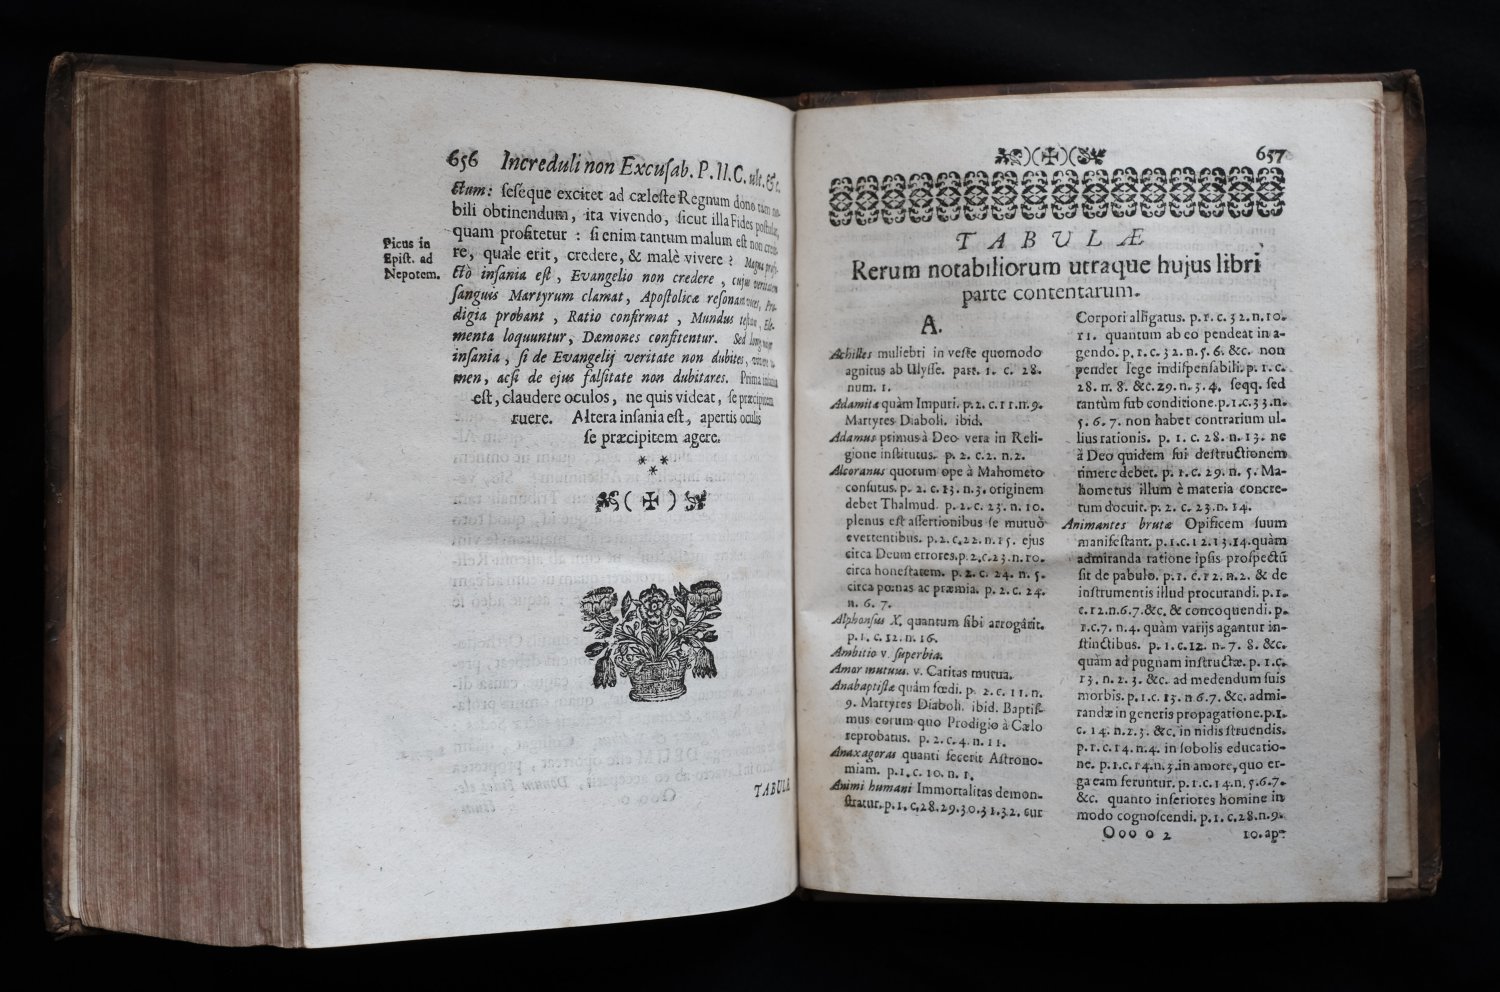 656 Increduli non Excusab. P. II. C. ult. & c.
ctum: seseque excitet ad cæleste Regnum dono tam no-
bili obtinendum, ita vivendo, sicut illa Fides postulat,
quam profitetur : si enim tantum malum est non crede-
re, quale erit, credere, & malè vivere ? Magna profe-
Picus in
Epist. ad
Nepotem.
ctò insania est, Evangelio non credere, cujus veritatem
sanguis Martyrum clamat, Apostolicæ resonant voces, Pro-
digia probant , Ratio confirmat , Mundus testatur, Ele-
menta loquuntur, Dæmones confitentur. Sed longè major
insania, si de Evangelij veritate non dubites, vivere ta-
men, acsi de ejus falsitate non dubitares. Prima insania
est, claudere oculos, ne quis videat, se præcipitem
ruere. Altera insania est, apertis oculis
se præcipitem agere.
* * *
( ✠ )
TABULÆ
)(✠)(
657
TABULÆ
Rerum notabiliorum utraque hujus libri
parte contentarum.
A.
Achilles muliebri in veste quomodo
agnitus ab Ulysse. part. 1. c. 28.
num. 1.
Adamitæ quàm Impuri. p. 2. c. 11. n. 9.
Martyres Diaboli. ibid.
Adamus primus à Deo vera in Reli-
gione institutus. p. 2. c. 2. n. 2.
Alcoranus quorum ope à Mahometo
consutus. p. 2. c. 13. n. 3. originem
debet Thalmud. p. 2. c. 23. n. 10.
plenus est assertionibus se mutuò
evertentibus. p. 2. c. 22. n. 15. ejus
circa Deum errores. p. 2. c. 23. n. 10.
circa honestatem. p. 2. c. 24. n. 5.
circa pœnas ac præmia. p. 2. c. 24.
n. 6. 7.
Alphonsus X. quantum sibi arrogârit.
p. 1. c. 12. n. 16.
Ambitio v. superbia.
Amor mutuus. v. Caritas mutua.
Anabaptistæ quàm fœdi. p. 2. c. 11. n.
9. Martyres Diaboli. ibid. Baptis-
mus eorum quo Prodigio à Cælo
reprobatus. p. 2. c. 4. n. 11.
Anaxagoras quanti fecerit Astrono-
miam. p. 1. c. 10. n. 1.
Animi humani Immortalitas demon-
stratur. p. 1. c. 28. 29. 30. 31. 32. cur
Corpori alligatus. p. 1. c. 32. n. 10.
11. quantum ab eo pendeat in a-
gendo. p. 1. c. 32. n. 5. 6. &c. non
pendet lege indispensabili. p. 1. c.
28. n. 8. &c. 29. n. 3. 4. seqq. sed
tantùm sub conditione. p. 1. c. 33. n.
5. 6. 7. non habet contrarium ul-
lius rationis. p. 1. c. 28. n. 13. ne
à Deo quidem sui destructionem
timere debet. p. 1. c. 29. n. 5. Ma-
hometus illum è materia concre-
tum docuit. p. 2. c. 23. n. 14.
Animantes brutæ Opificem suum
manifestant. p. 1. c. 12. 13. 14. quàm
admiranda ratione ipsis prospectū
sit de pabulo. p. 1. c. 12. n. 2. & de
instrumentis illud procurandi. p. 1.
c. 12. n. 6. 7. &c. & concoquendi. p.
1. c. 7. n. 4. quàm varijs agantur in-
stinctibus. p. 1. c. 12. n. 7. 8. &c.
quàm ad pugnam instructæ. p. 1. c.
13. n. 2. 3. &c. ad medendum suis
morbis. p. 1. c. 13. n 6. 7. &c. admi-
randæ in generis propagatione. p. 1.
c. 14. n. 2. 3. &c. in nidis struendis.
p. 1. c. 14. n. 4. in sobolis educatio-
ne. p. 1. c. 14. n. 3. in amore, quo er-
ga eam feruntur. p. 1. c. 14. n. 5. 6. 7.
&c. quanto inferiores homine in
modo cognoscendi. p. 1. c. 28. n. 9.
Oooo 2
10. ap-